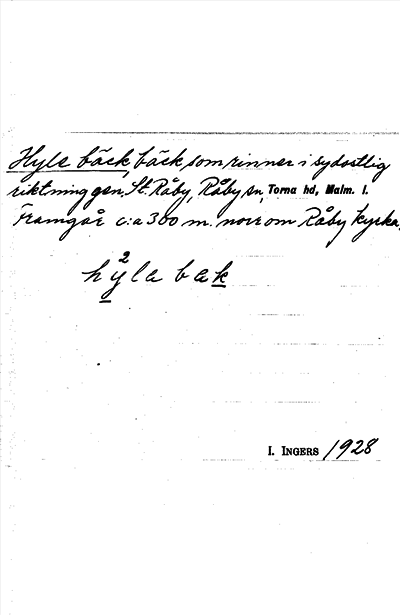 Hyle bäck, bäck, som rinner i sydostlig
riktning gen. St. Råby, Råby sn, Torna hd, Malm. l.
Framgår c:a 300 m. norr om Råby kyrka.
h²yla bæk
I. INGERS 1928